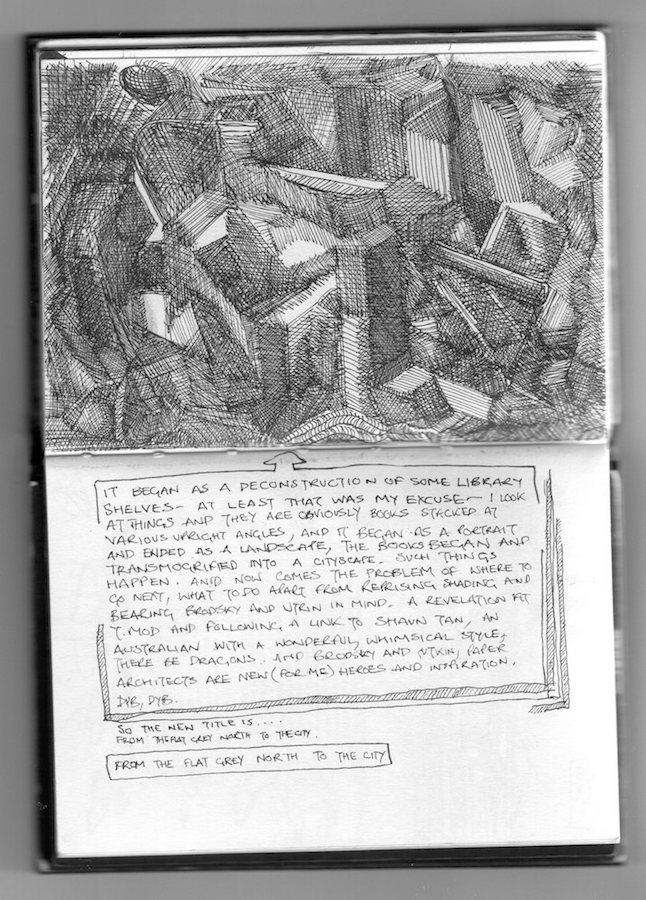 IT BEGAN AS A DECONSTRUCTION OF SOME LIBRARY
SHELVES - AT LEAST THAT WAS MY EXCUSE - I LOOK
AT THINGS AND THEY ARE OBVIOUSLY BOOKS STACKED AT
VARIOUS UPRIGHT ANGLES, AND IT BEGAN AS A PORTRAIT
AND ENDED AS A LANDSCAPE, THE BOOKS BEGAN AND
TRANSMOGRIFIED INTO A CITYSCAPE. SUCH THINGS
HAPPEN. AND NOW COMES THE PROBLEM OF WHERE TO
GO NEXT, WHAT TO DO APART FROM REPRISING SHADING AND
BEARING BRODSKY AND UTKIN IN MIND. A REVELATION
T. MOD AND FOLLOWING A LINK TO SHAUN TAN, AN
AUSTRALIAN WITH A WONDERFUL, WHIMSICAL STYLE,
THERE BE DRAGONS. AND BRODSKY AND UTKIN, PAPER
ARCHITECTS ARE NEW (FOR ME) HEROES AND INSPIRATION.
DYB, DYB.
SO THE NEW TITLE IS....
FROM THE FLAT GREY NORTH TO THE CITY.
FROM THE FLAT GREY NORTH TO THE CITY